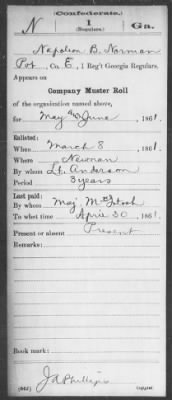 (Confederate.)
N 1 Ga.
(Regulars.)
Napoleon B. Norman
Pvt, Co. E, 1 Reg't Georgia Regulars.
Appears on
Company Muster Roll
of the organization named above,
for May & June, 1861.
Enlisted:
When March 8, 1861.
Where Newnan
By whom Lt. Anderson
Period 3 years
Last paid:
By whom Maj. McIntosh
To what time April 30, 1861.
Present or absent Present
Remarks:
Book mark:
J A Phillips
(642) Copyist.